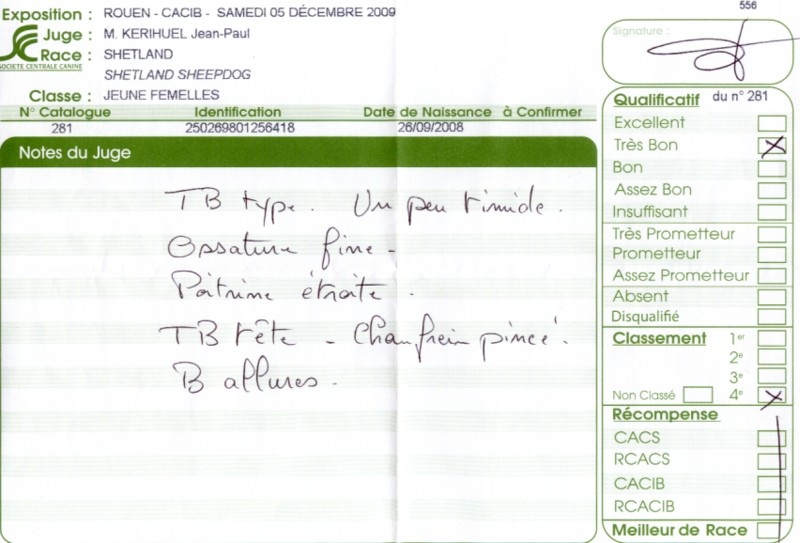 556
Exposition : ROUEN - CACIB - SAMEDI 05 DÉCEMBRE 2009
Juge : M. KERIHUEL Jean-Paul
Race : SHETLAND
SOCIETE CENTRALE CANINE
SHETLAND SHEEPDOG
Classe : JEUNE FEMELLES
N° Catalogue Identification Date de Naissance à Confirmer
281 250269801256418 26/09/2008
Notes du Juge
TB type. Un peu timide.
Ossature fine -
Poitrine étroite.
TB tête - Chanfrein pincé.
B allures.
Signature :
Qualificatif du n° 281
Excellent
Très Bon X
Bon
Assez Bon
Insuffisant
Très Prometteur
Prometteur
Assez Prometteur
Absent
Disqualifié
Classement 1er
2e
3e
Non Classé 4e X
Récompense
CACS
RCACS
CACIB
RCACIB
Meilleur de Race